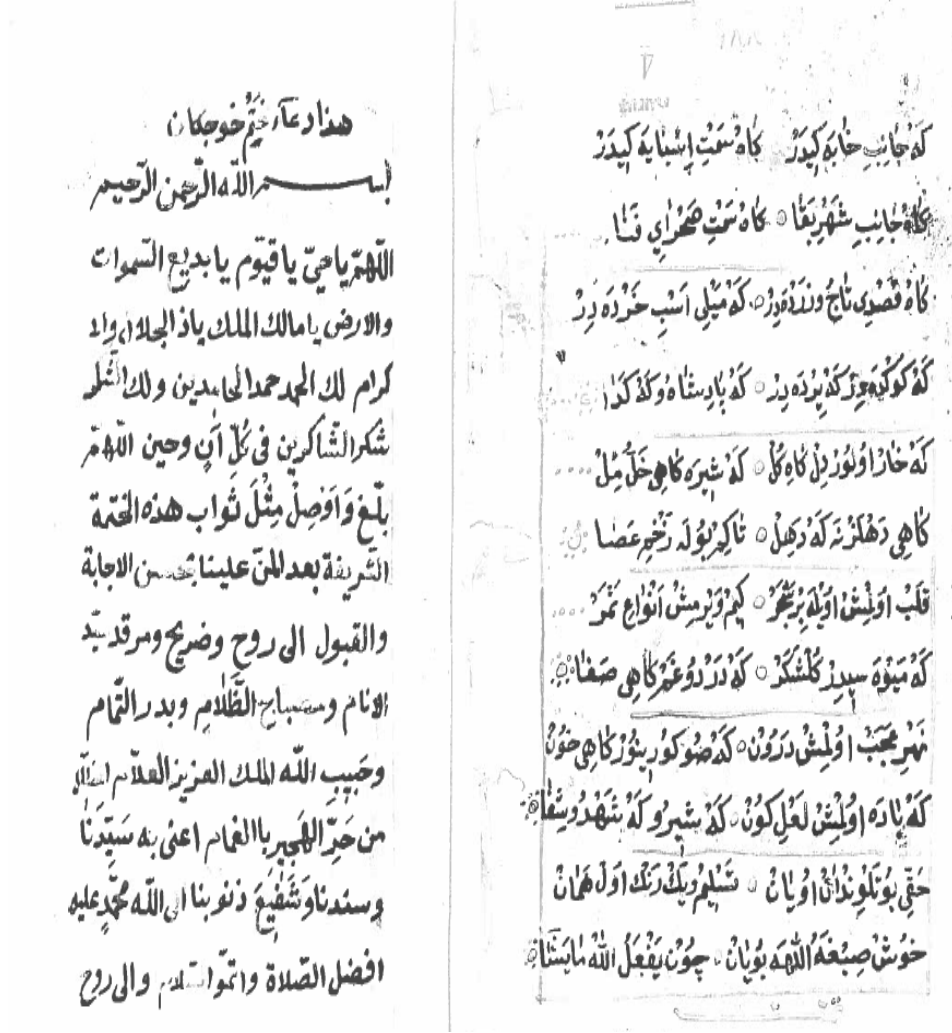 كَهْ جَانِبِ خَانَهٔ كِيدَرْ كَاهْ سَمْتِ كِيدَرْ
كَاهْ جَانِبِ شَهْرِ بَقَا كَاهْ سَمْتِ صَحْرَايِ فَنَا
كَاهْ قَصْدِى تَاجُ كَهْ مَيْلِى اَسْبِ خَرْدَه دِرْ
كَهْ كَهْ دِرْ كَهْ پَادِشَاه وُ كَهْ كَدَا
كَهْ خَارْ اُولُورْ دِلْ كَاهِ كُلْ كَهْ شِيرَه كَاهِى خَلُّ مُلْ
كَاهِى كَهْ دَهِلْ تَاكِهْ بُولَه زَخْمِ عَصَا
قَلْبْ اُولْمِشْ اُويْلَه بِرْ شَجَرْ كِيمْ وِيرْمِشْ اَنْوَاعِ ثَمَرْ
كَهْ مَيْوَهَ سِيدِرْ كُلْشَكَرْ كَهْ دَرْدُ وُ غَمْ كَاهِى صَفَا
نَهْرِ عَجَبْ اُولْمِشْ دَرُونْ كَهْ صُو كَاهِى خُونْ
كَهْ بَادَه اُولْمِشْ لَعْلِ كُونْ كَهْ شِيرُ وكَهْ شَهْدُ وشِفَا
حَقِّى بُو اُويَانْ تَسْلِيمُ رَنْك اُولْ هَمَانْ
خُوشْ صِبْغَةُ اللّٰهَه بُويَانْ چُونْ يَفْعَلُ اللّٰهُ مَا يَشَا
هذا دعآء ختم خوجكان
بسم اللّه الرّحمن الرّحيم
اللّهمّ يا حيّ يا قيّوم يا بديع السّموات
والارض يا مالك الملك ياذ الجلال والا
كرام لك الحمد حمد الحامدين ولك الشكر
شكر الشّاكرين فى كُلّ اَنٍ وحين اللّهمّ
بلّغ وَاَوْصِلْ مِثْلَ ثواب هذه الختمة
الشّريفة بعد المنّ علينا بحسن الاجابة
والقبول الى روح وضريح ومرقد سيّد
الانام ومصباح الظَّلَامِ وبدر التّمام
وحَبِيبِ اللّه الملك العزيز العلّام
من حَرِّ الهَجِير باالغمام اعنى به سَيِّدَنَا
وسندنا وَشَفِيعَ ذنوبنا الى اللّه محمّدٍ عليه
افضل الصّلاة واتمّ السّلام والى روح